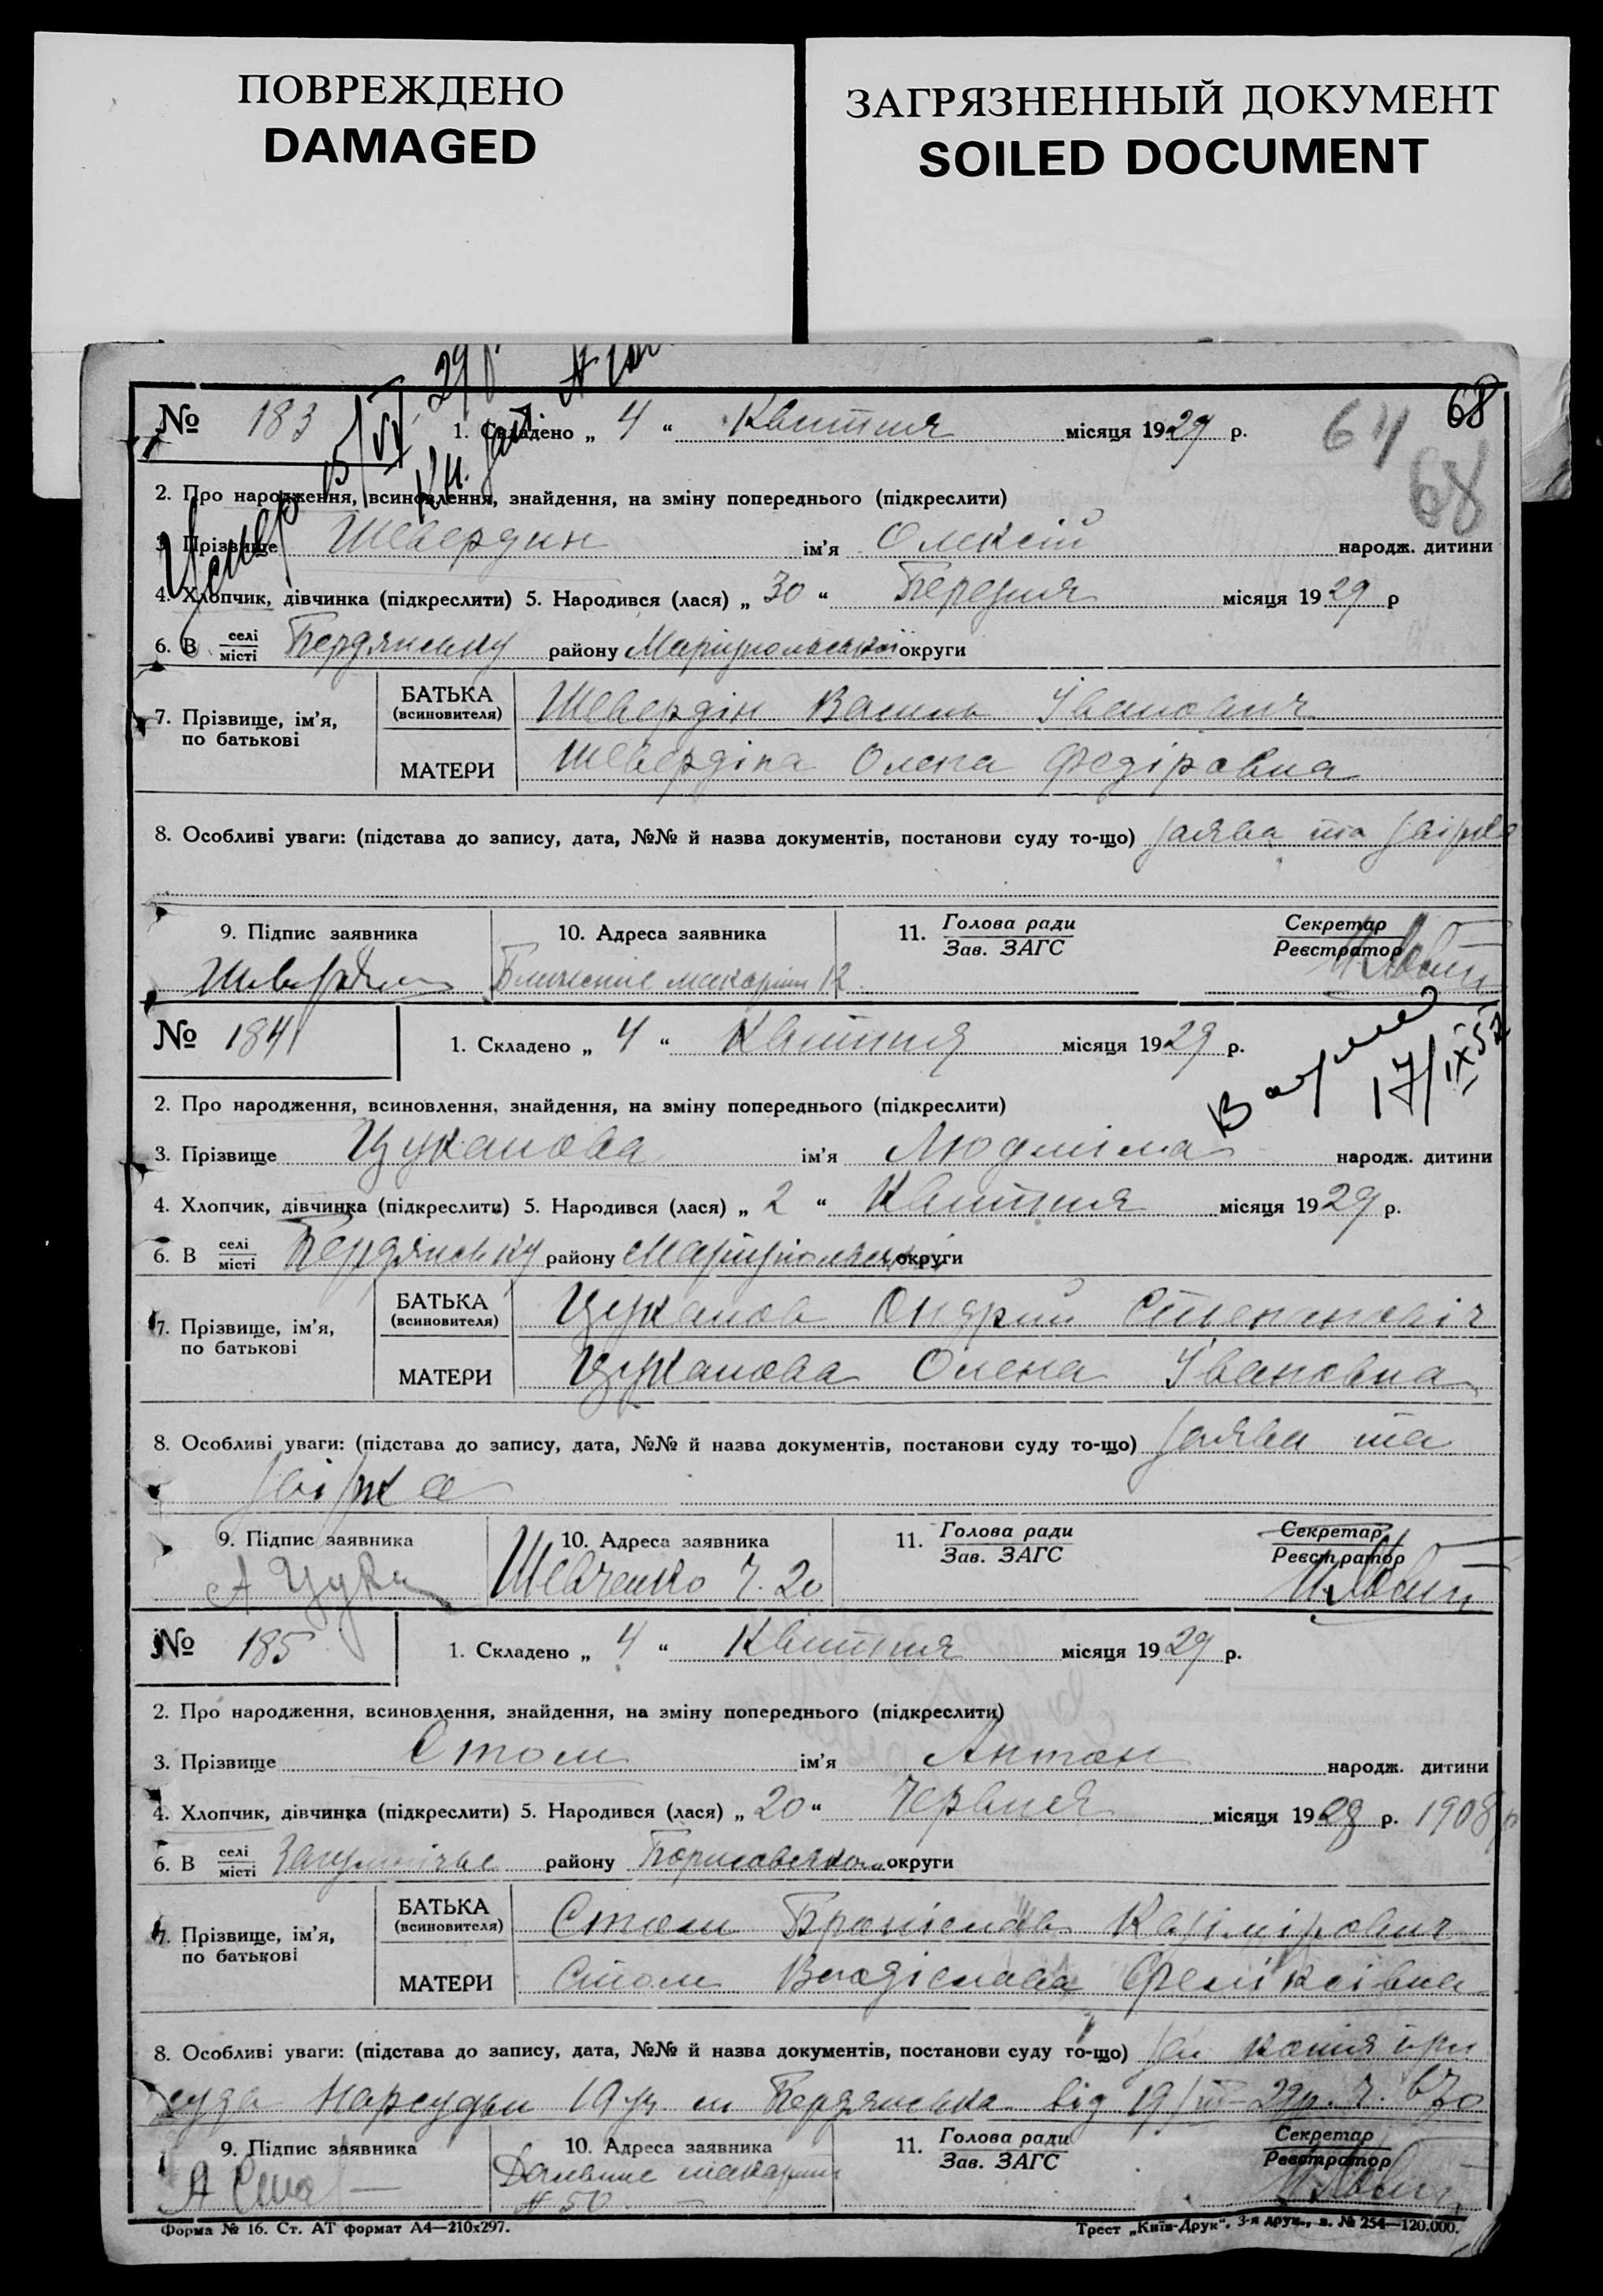 ПОВРЕЖДЕНО
DAMAGED
ЗАГРЯЗНЕННЫЙ ДОКУМЕНТ
SOILED DOCUMENT
68
64
68
№ 183
1. Складено „ 4 “ Квитня місяця 1929 р.
2. Про народження, всиновлення, знайдення, на зміну попереднього (підкреслити)
3. Прізвище Шевердин ім'я Олексій народж. дитини
4. Хлопчик, дівчинка (підкреслити) 5. Народився (лася) „ 30 “ Березня місяця 1929 р
6. В селі місті Бердянську району Маріупольської округи
7. Прізвище, ім'я, по батькові
БАТЬКА (всиновителя) Шевердін Василь Іванович
МАТЕРИ Шевердіна Олена Федіровна
8. Особливі уваги: (підстава до запису, дата, №№ й назва документів, постанови суду то-що) заява та
9. Підпис заявника
10. Адреса заявника
11. Голова ради Зав. ЗАГС
Секретар Реєстратор
№ 184
1. Складено „ 4 “ Квитня місяця 1929 р.
17/IX 52
2. Про народження, всиновлення, знайдення, на зміну попереднього (підкреслити)
3. Прізвище Цуканова ім'я Людміла народж. дитини
4. Хлопчик, дівчинка (підкреслити) 5. Народився (лася) „ 2 “ Квитня місяця 1929 р.
6. В селі місті Бердянську району Маріупольської округи
7. Прізвище, ім'я, по батькові
БАТЬКА (всиновителя) Цуканов Андрий
МАТЕРИ Цуканова Олена Івановна
8. Особливі уваги: (підстава до запису, дата, №№ й назва документів, постанови суду то-що) заява та
9. Підпис заявника
10. Адреса заявника
11. Голова ради Зав. ЗАГС
Секретар Реєстратор
А Цука
Шевченко ч. 20
№ 185
1. Складено „ 4 “ Квитня місяця 1929 р.
2. Про народження, всиновлення, знайдення, на зміну попереднього (підкреслити)
3. Прізвище Стом ім'я Антон народж. дитини
4. Хлопчик, дівчинка (підкреслити) 5. Народився (лася) „ 20 “ Червня місяця 1928 р. 1908 р
6. В селі місті району Борисовського округи
7. Прізвище, ім'я, по батькові
БАТЬКА (всиновителя) Броніслав Казімірович
МАТЕРИ Владіслава Феліксівна
8. Особливі уваги: (підстава до запису, дата, №№ й назва документів, постанови суду то-що) копія
Нарсудьи 19 м Бердянська від 19/III-29р.
9. Підпис заявника
10. Адреса заявника
11. Голова ради Зав. ЗАГС
Секретар Реєстратор
№ 50
Форма № 16. Ст. АТ формат А4—210х297.
Трест „Київ-Друк“. 3-я друк., з. № 254—120.000.